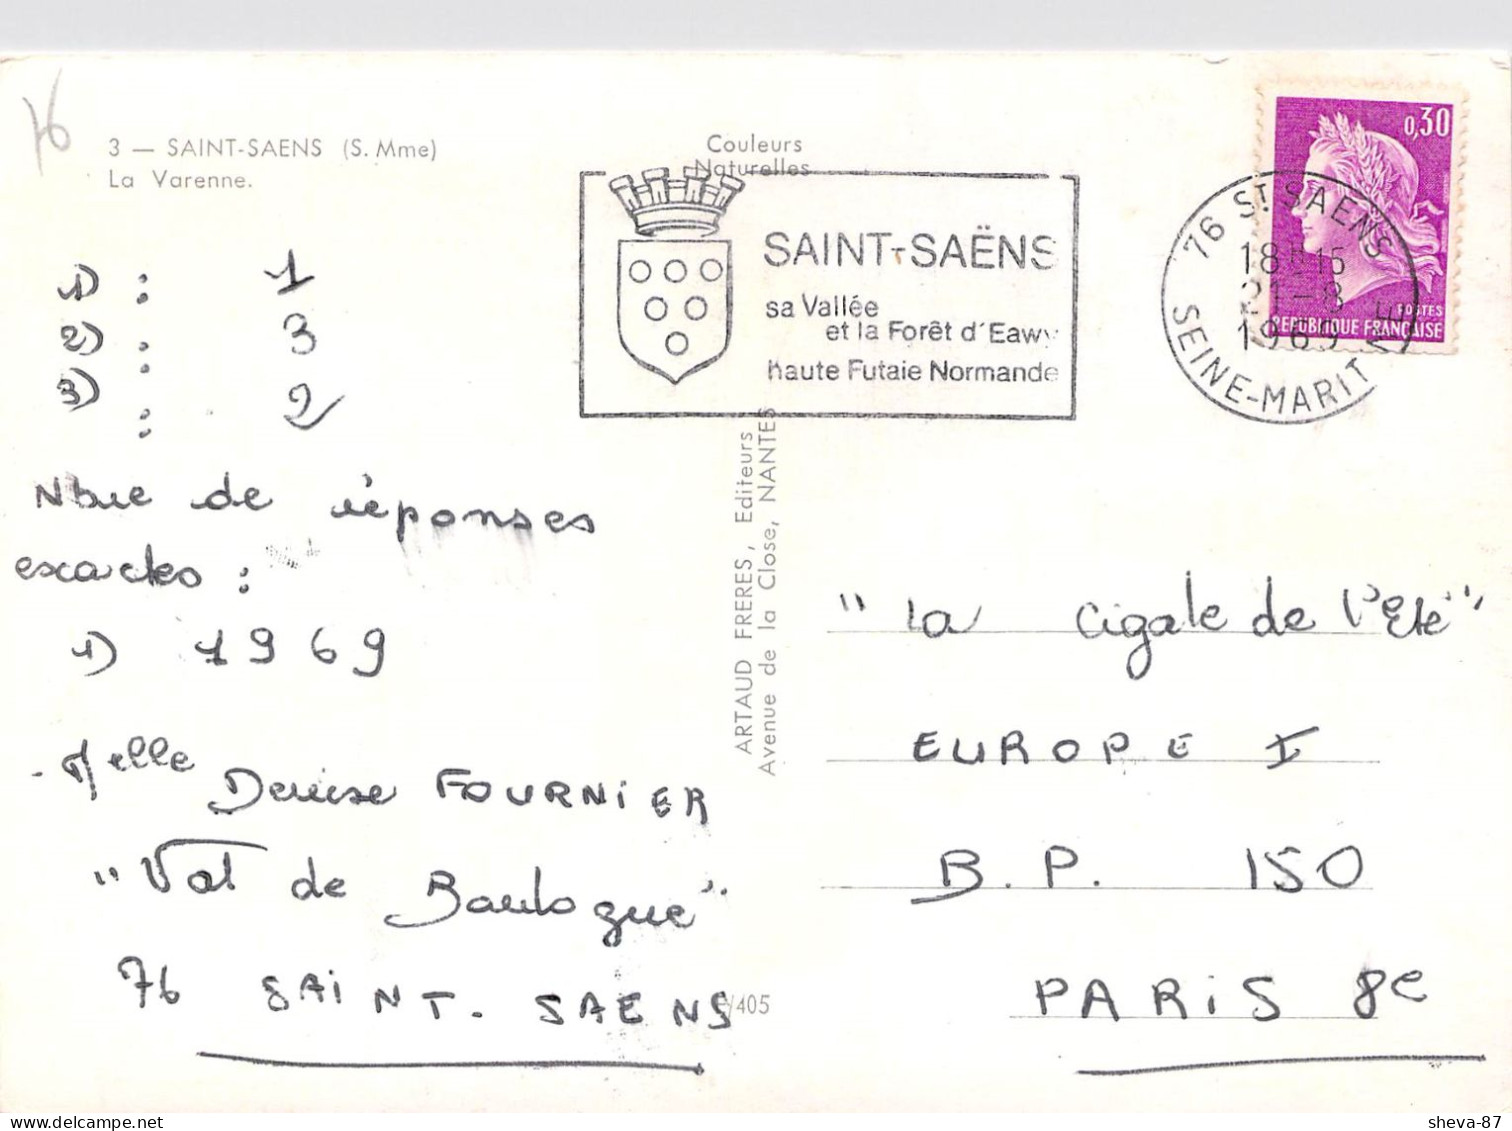 76
3 — SAINT-SAENS (S. Mme)
La Varenne.
Couleurs
Naturelles
SAINT-SAËNS
sa Vallée
et la Forêt d'Eawy
haute Futaie Normande
0,30
POSTES
REPUBLIQUE FRANÇAISE
76 ST SAENS
18H15
21-8
1969
SEINE-MARITIME
1) : 1
2) : 3
3) : 2
Nbre de réponses
exactes :
1) 1969
- Melle Denise FOURNIER
"Val de Boulogne"
76 SAINT-SAENS
ARTAUD FRERES, Editeurs
Avenue de la Close, NANTES
/405
"La Cigale de l'Eté"
EUROPE I
B.P. 150
PARIS 8e
sheva-87